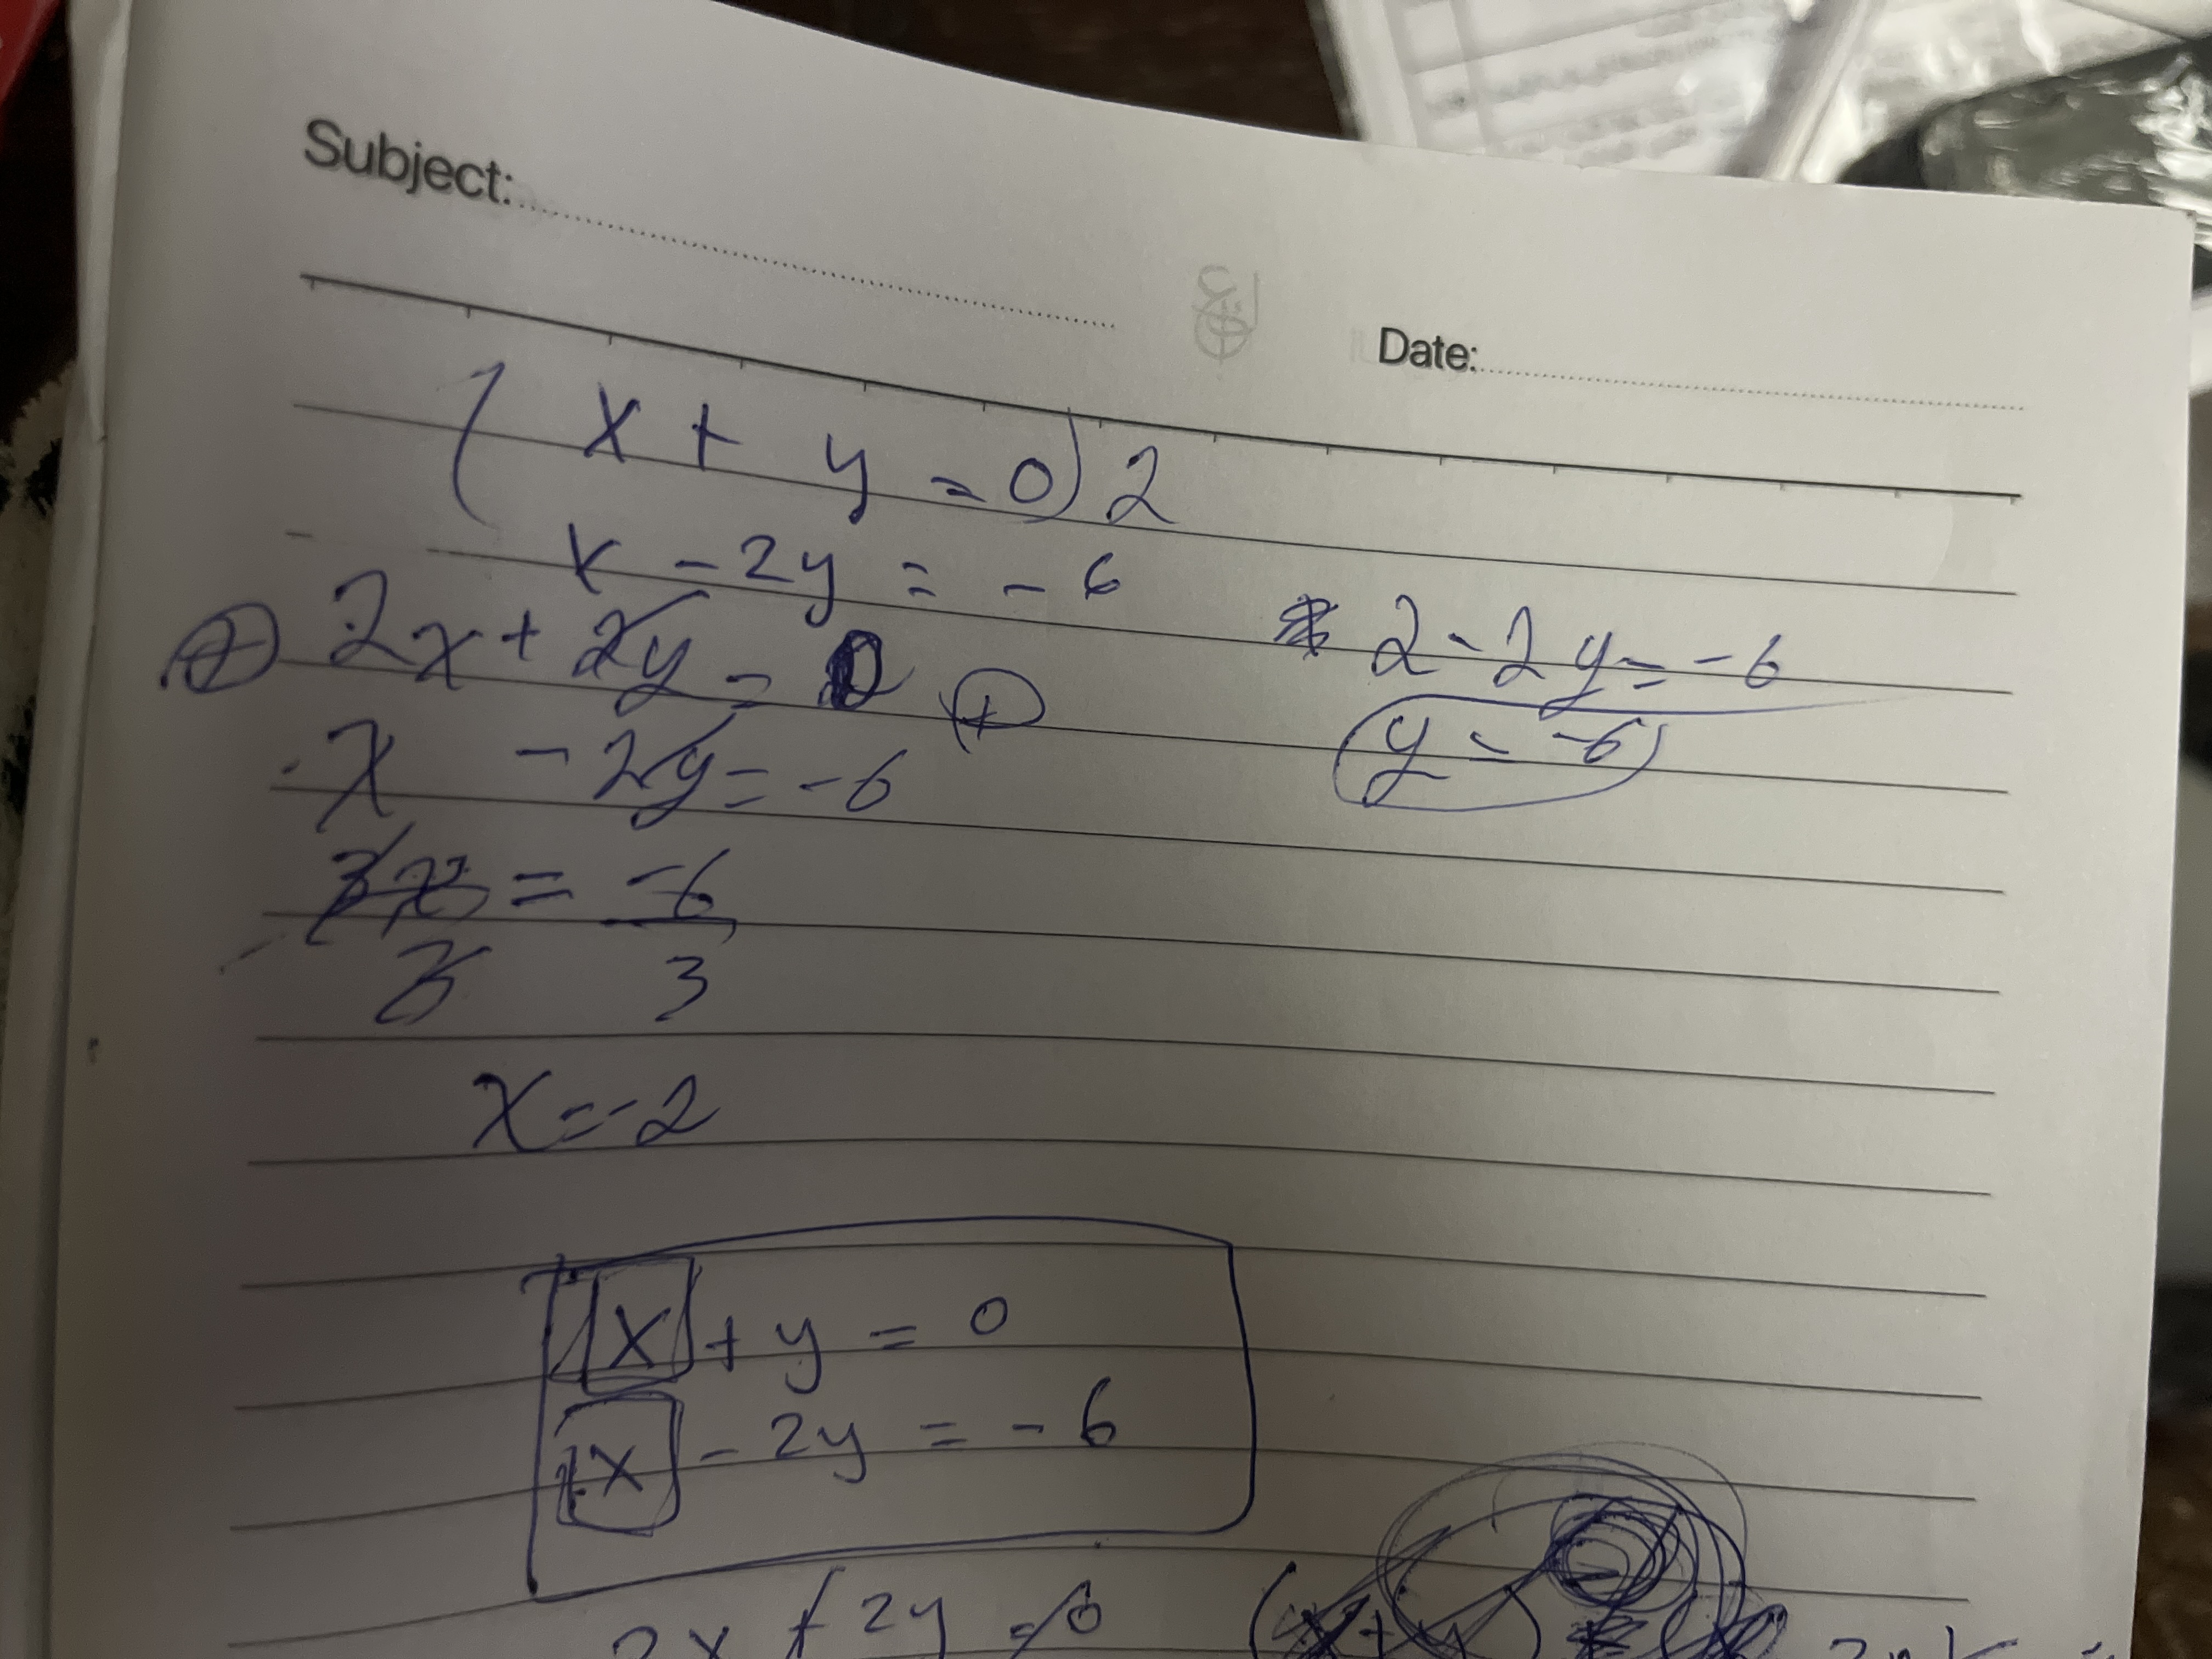 Subject:
Date:
(x + y = 0)2
x - 2y = -6
+ 2x + 2y = 0 +
x - 2y = -6
3x = -6
3 3
x = -2
2 - 2y = -6
y = -6
x + y = 0
1x - 2y = -6
2x + 2y = 0